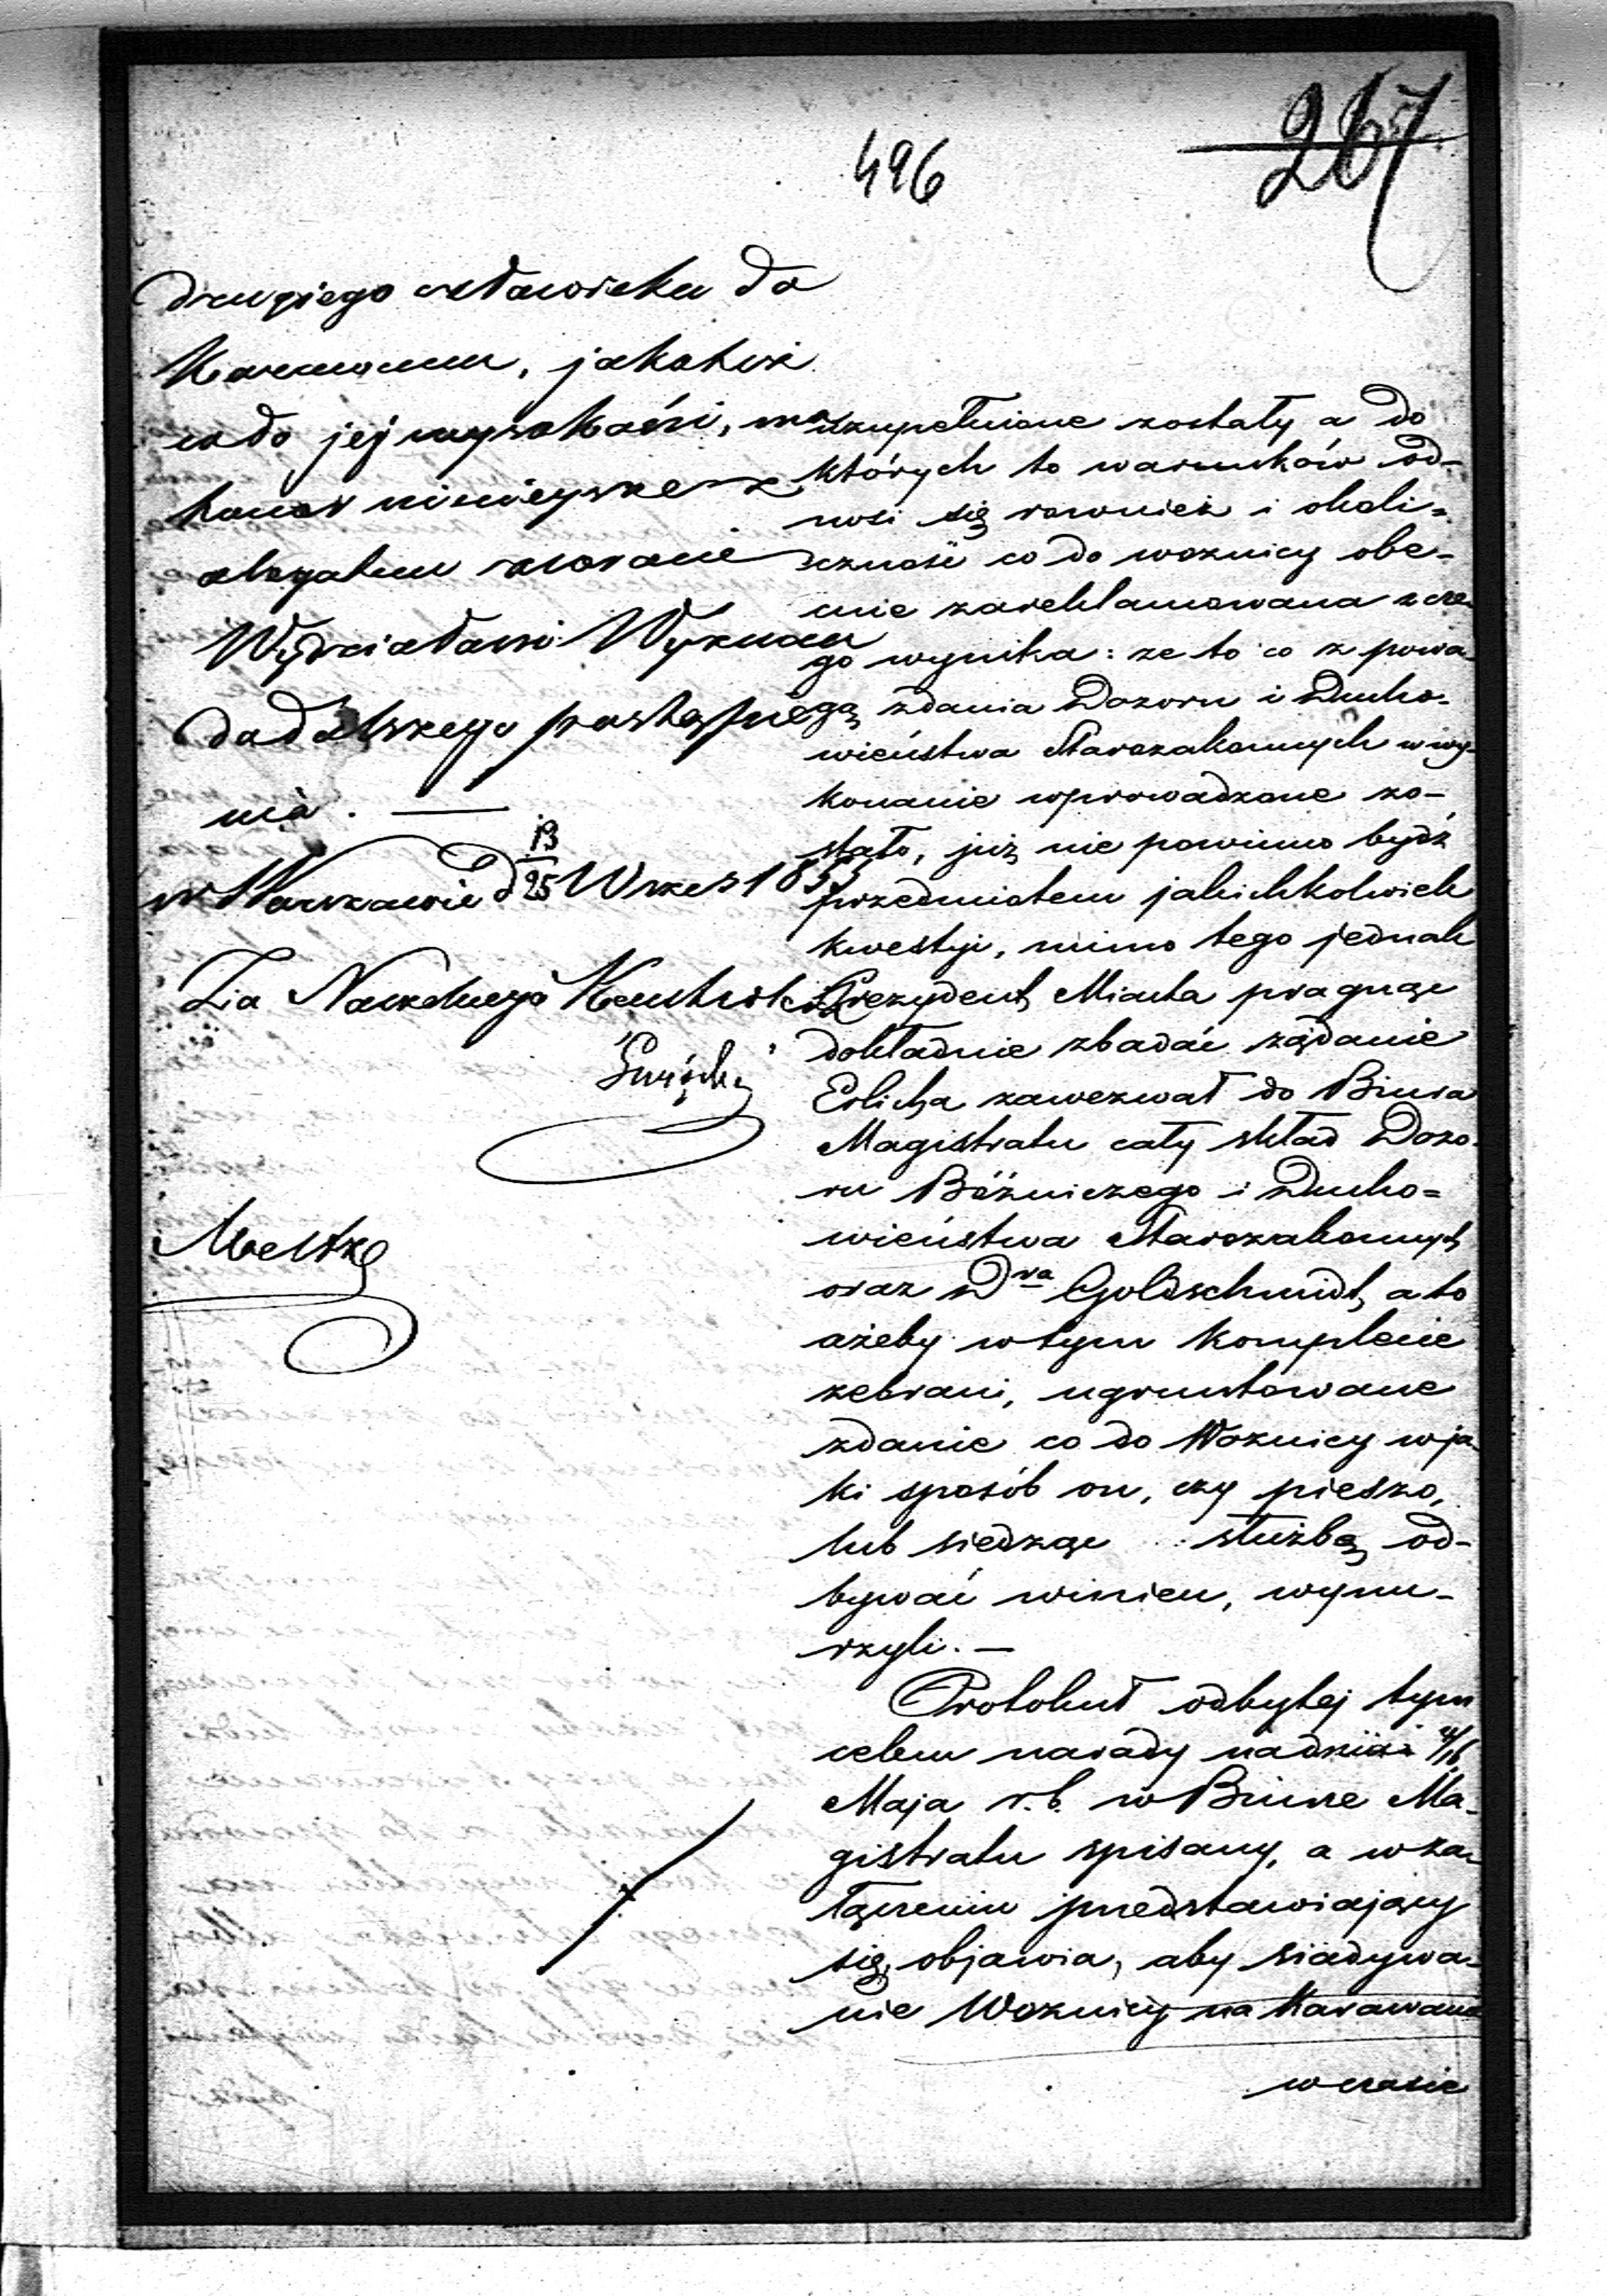 496
267
drugiego człowieka do
Karawanu, jakotéż
co do jej wysokości,
kanał niniejsze z
alegatem zwraca
Wydziałowi Wyznań
do dalszego postąpie
nia. —
w Warszawie d 13/25 Wrześ 1853
Za Naczelnego Kontrol
uzupełnione zostały a do
których to warunków od-
nosi się rownież i okoli=
czność co do woznicy obe-
cnie zareklamowana z cze
go wynika: ze to co z powa
gą zdania Dozoru i Ducho-
wieństwa Starozakonnych w wy-
konanie wprowadzone zo-
stało, już nie powinno bydź
przedmiotem jakichkolwiek
kwestyi, mimo tego jednak
Prezydent Miasta pragnąc
dokładnie zbadać żądanie
Erlicha zawezwał do Biura
Magistratu cały skład Dozo-
ru Bóżniczego i Ducho=
wieństwa Starozakonnych
oraz Dra Goldschmidt, a to
ażeby w tym komplecie
zebrani, ugruntowane
zdanie co do Woznicy w ja
ki sposób on, czy pieszo,
lub siedząc służbę od-
bywać winien, wynu-
rzyli. —
Protokuł odbytej tym
celem narady na dniu 4/16
Maja r.b. w Biurze Ma-
gistratu spisany, a w za-
łączeniu przedstawiający
się, objawia, aby siadywa-
nie Woznicy na Karawanie
w czasie